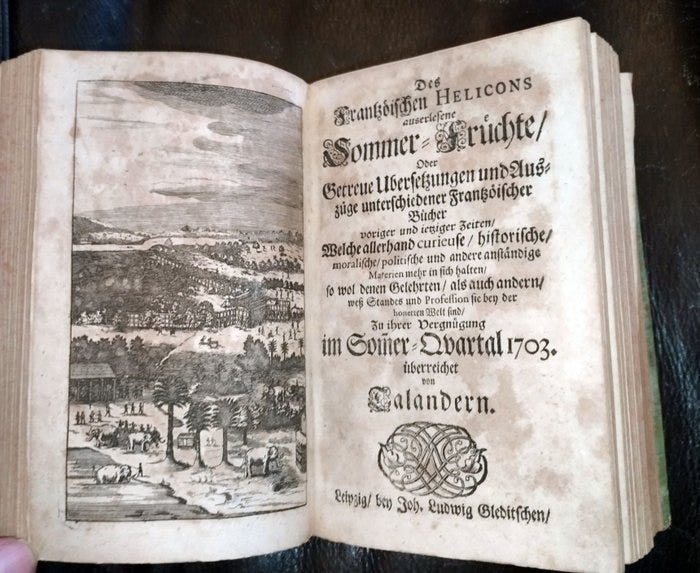 Des
Frantzöischen HELICONS
auserlesene
Sommer-Früchte/
Oder
Getreue Ubersetzungen und Aus-
züge unterschiedener Frantzöischer
Bücher
voriger und ietziger Zeiten/
Welche allerhand curieuse/ historische/
moralische/ politische und andere anständige
Materien mehr in sich halten/
so wol denen Gelehrten/ als auch andern/
weß Standes und Profession sie bey der
honetten Welt sind/
Zu ihrer Vergnügung
im Som̃er-Qvartal 1703.
überreichet
von
Talandern.
Leipzig/ bey Joh. Ludwig Gleditschen/